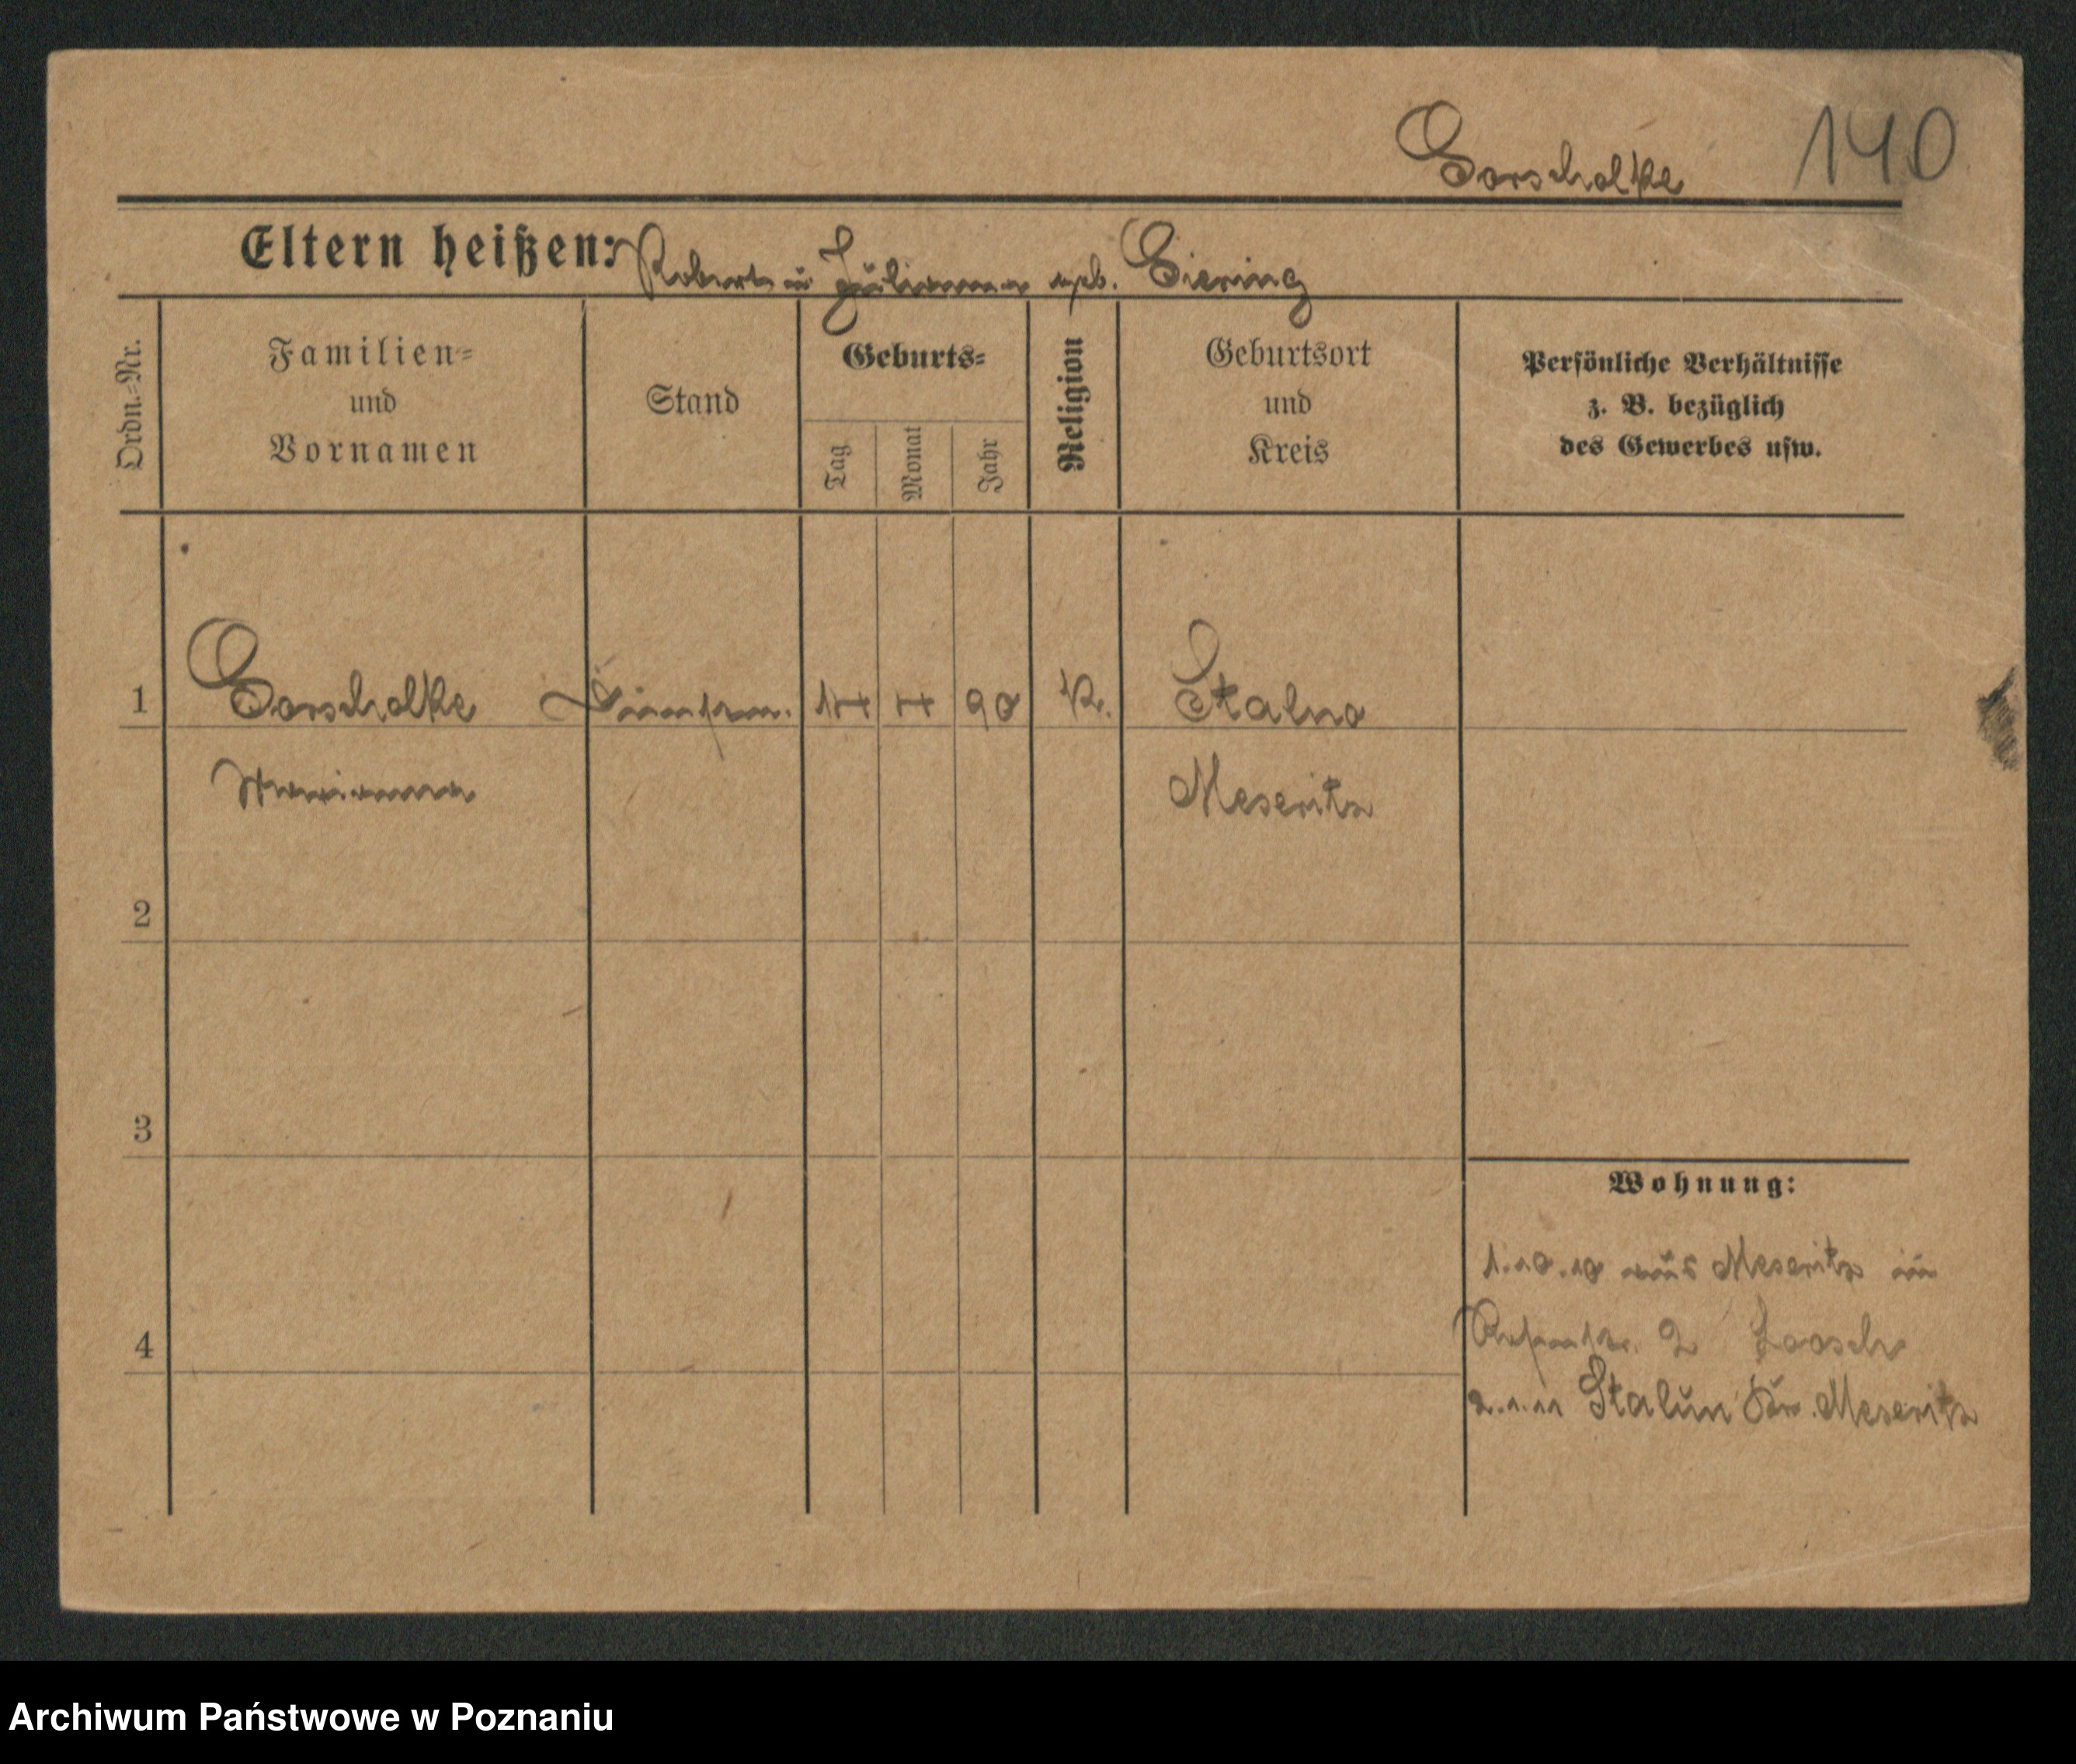 Gorschalke 140
Eltern heißen: Robert u Julianna geb. Giering
Ordn.-Nr.
Familien- und Vornamen
Stand
Geburts-
Tag
Monat
Jahr
Religion
Geburtsort und Kreis
Persönliche Verhältnisse
z. B. bezüglich
des Gewerbes usw.
1 Gorschalke 90 K. Stalun
Marianna Meseritz
2
3
4
Wohnung:
1.10.10 aus Meseritz in
2
2.1.11 Stalun Kr. Meseritz
Archiwum Państwowe w Poznaniu